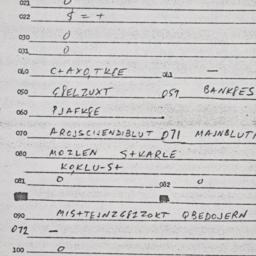 021 0
022 $ = +
030 0
031 0
040 C+AXO,TKPE 041 —
050 GPELZUXT 051 BANKPES
060 PJAFKPE
070 AROJSCIJENDIBLUT 071 MAJNBLUT
080 MOZLEN S+VARLE
KOKLU-S+
081 0 082 0
090 MIS+TEJNZGPZZOKT QBEDOJERN
072 —
100 0